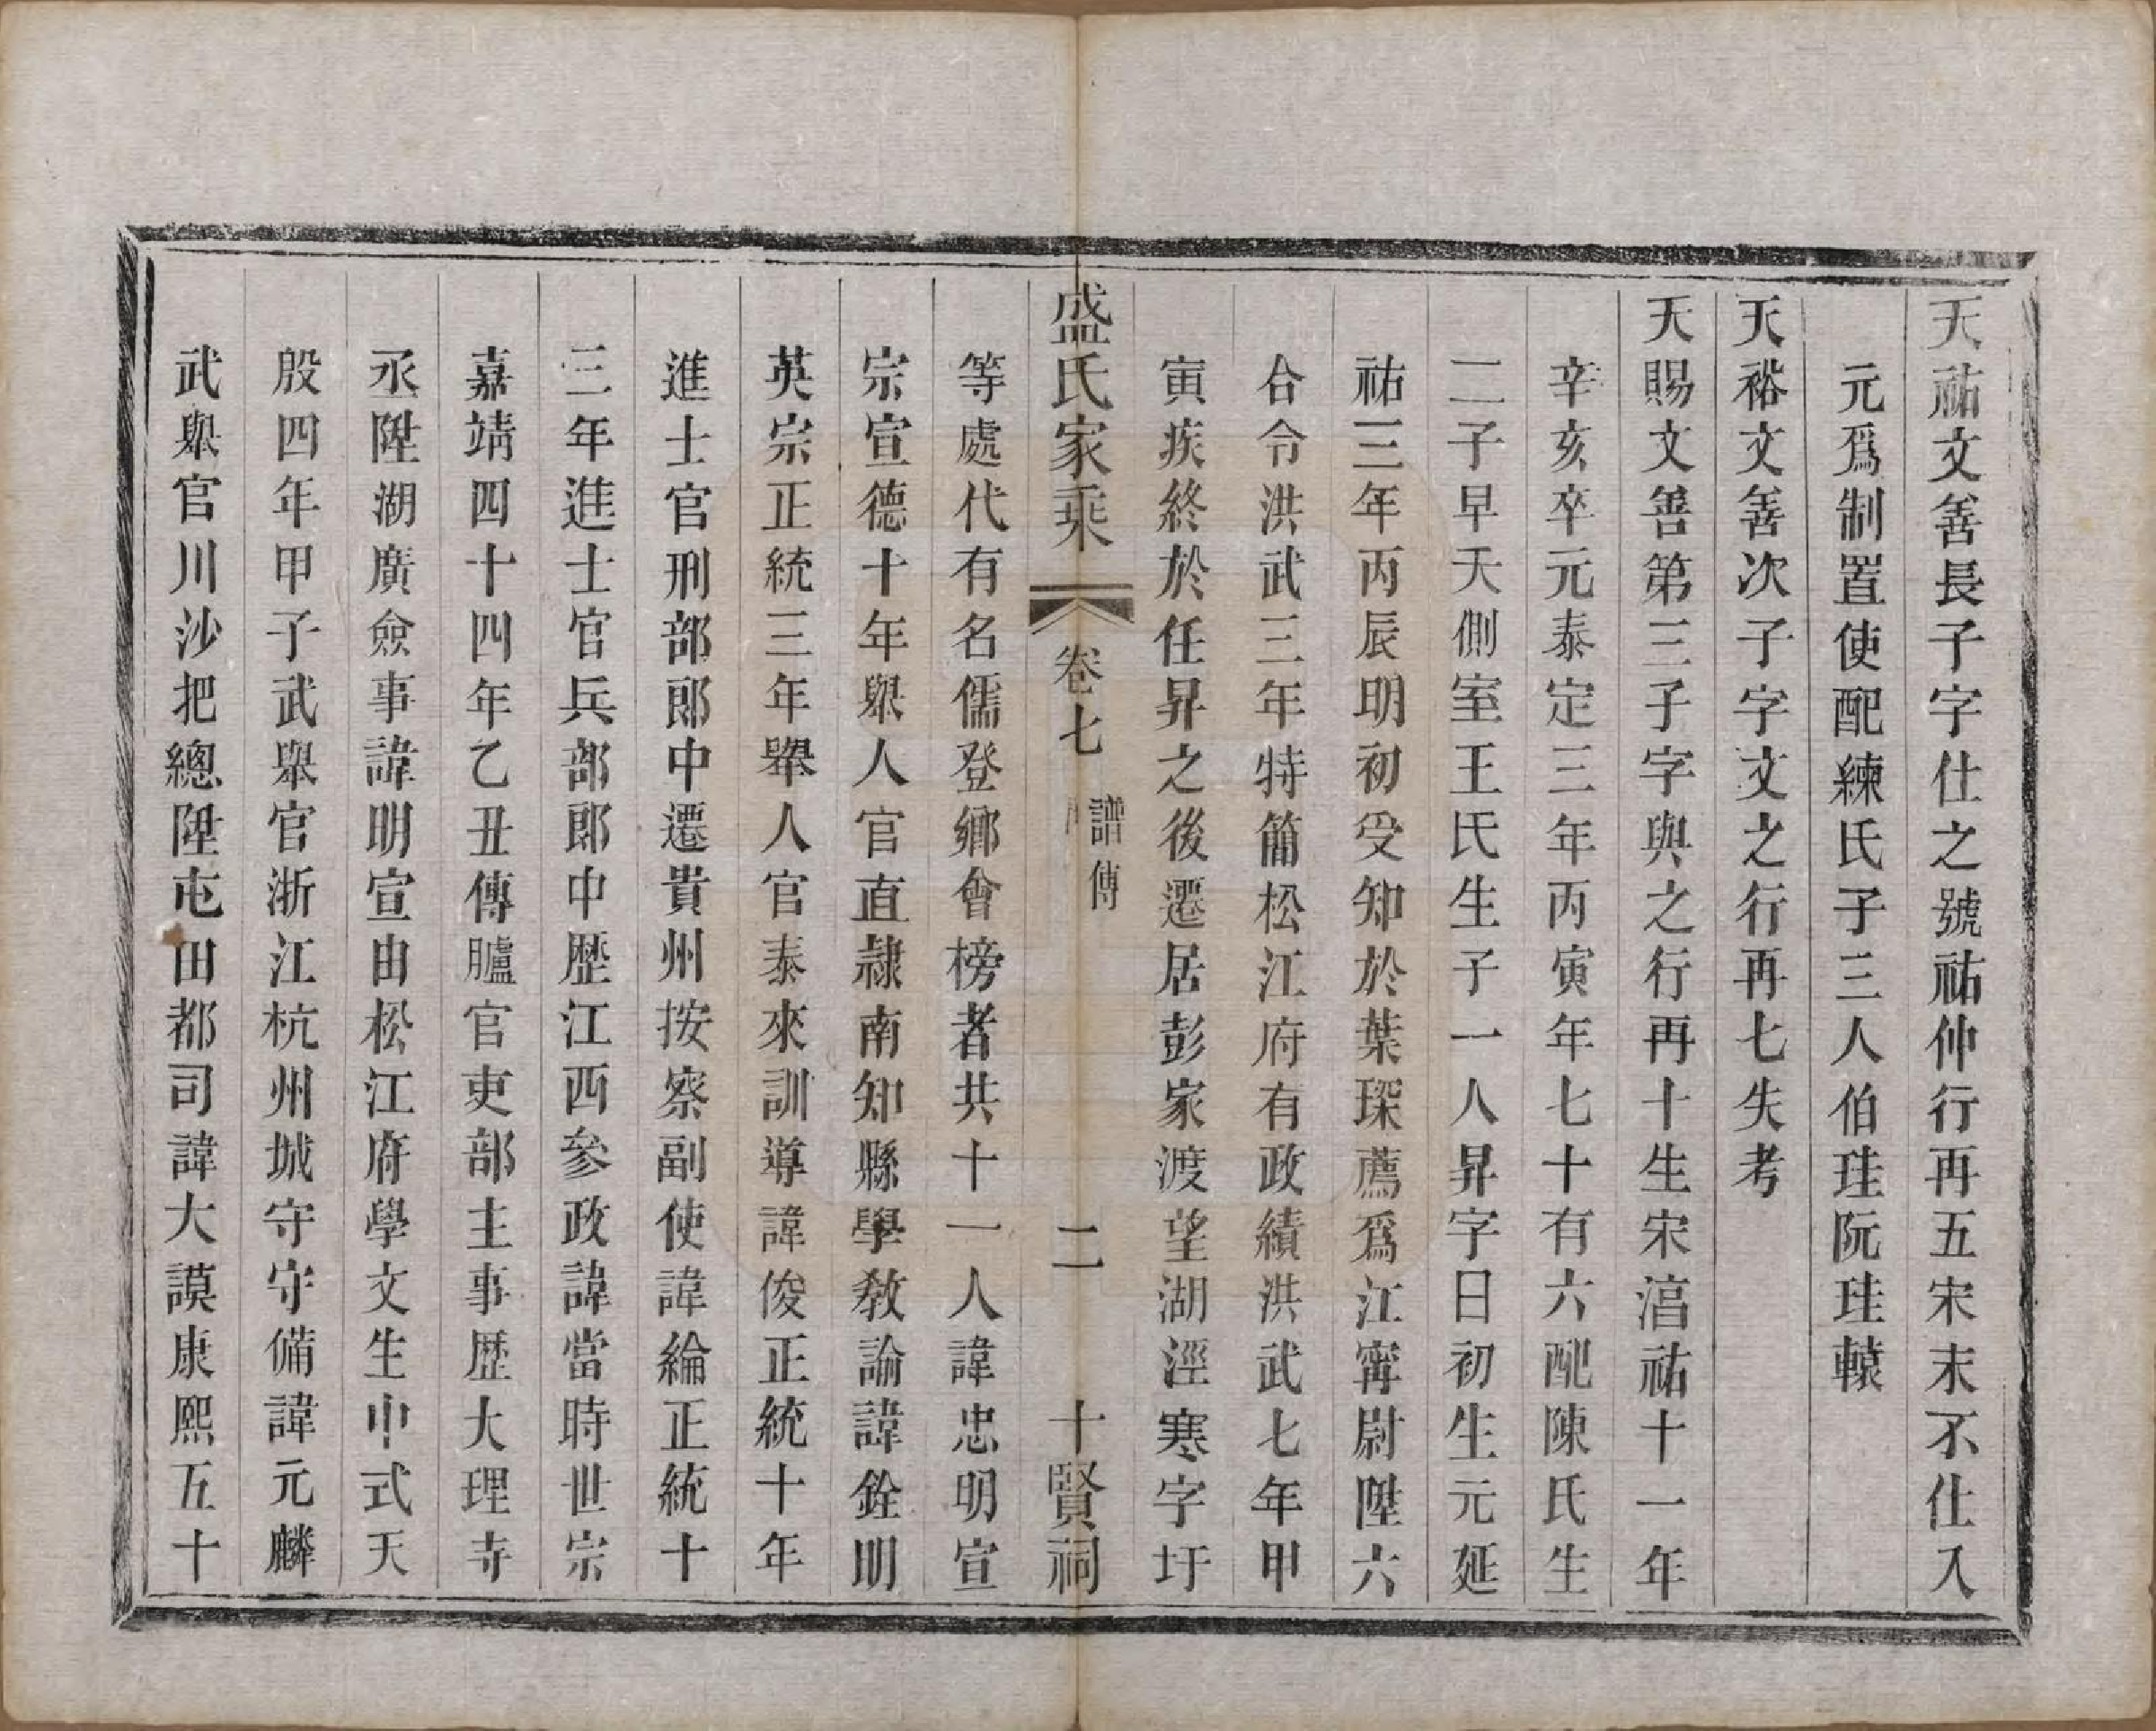 天祐文善長子字仕之號祐仲行再五宋末不仕入
元爲制置使配練氏子三人伯珪阮珪轅
天裕文善次子字文之行再七失考
天賜文善第三子字與之行再十生宋湻祐十一年
辛亥卒元泰定三年丙寅年七十有六配陳氏生
二子早夭側室王氏生子一人昇字日初生元延
祐三年丙辰明初受知於葉琛薦爲江寗尉陞六
合令洪武三年特簡松江府有政績洪武七年甲
寅疾終於任昇之後遷居彭家渡望湖涇寒字圩
盛氏家乘 卷七 譜傳 二 十賢祠
等處代有名儒登鄉會榜者共十一人諱忠明宣
宗宣德十年舉人官直隷南知縣學敎諭諱銓明
英宗正統三年舉人官泰來訓導諱俊正統十年
進士官刑部郎中遷貴州按察副使諱綸正統十
三年進士官兵部郎中歷江西參政諱當時世宗
嘉靖四十四年乙丑傳臚官吏部主事歷大理寺
丞陞湖廣僉事諱明宣由松江府學文生中式天
殷四年甲子武舉官浙江杭州城守守備諱元麟
武舉官川沙把總陞屯田都司諱大謨康熙五十